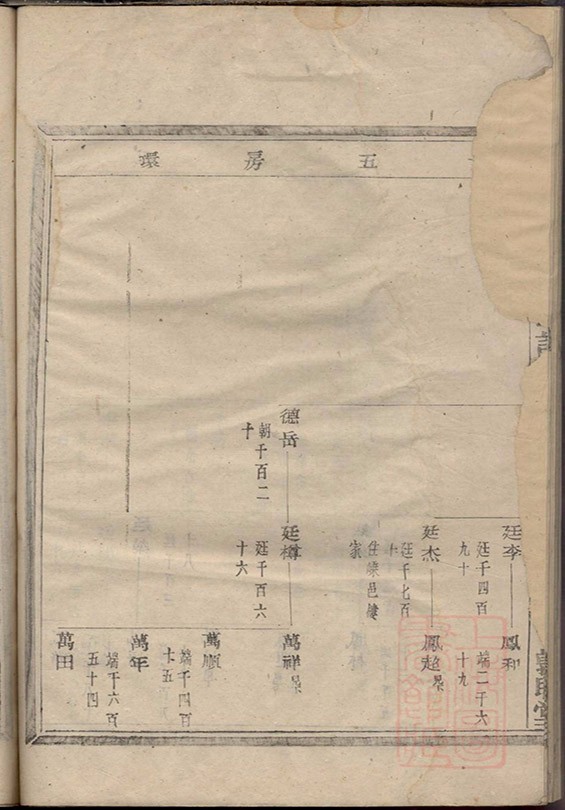 五房環
廷李
廷千四百
九十
鳳和
端二千六
十九
廷杰
廷千七百
十
住嵊邑縷
家
鳳超
德岳
朝千百二
十
廷樽
廷千百六
十六
萬祥
萬順
端千四百
七五
萬年
端千六百
五十四
萬田